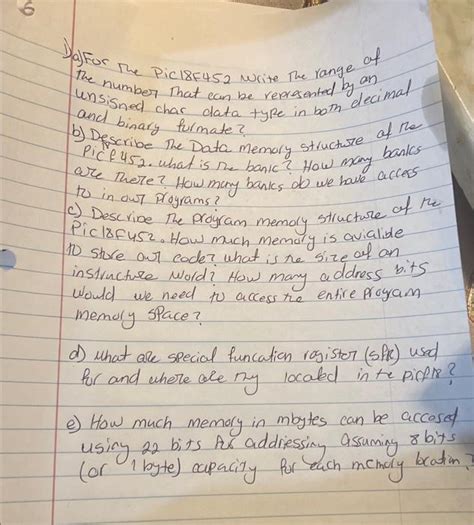 6
1) a) For The Pic18F452 write The range of
The number That can be represented by an
unsisned char data type in both decimal
and binary furmate?
b) Describe The Data memory structure of The
PicF452. what is The bank? How many banks
are There? How many banks do we have access
to in our programs?
c) Describe The program memory structure of the
Pic18F452. How much memory is avialide
to store our code? what is the size of an
instructure word? How many address bits
would we need to access the entire program
memory space?
d) what are special funcation rogister (SFR) used
for and where are they located in the pic
e) How much memory in mbytes can be accosed
using 22 bits for addriessing assuming 8 bits
(or 1 byte) capacity for each memory location?